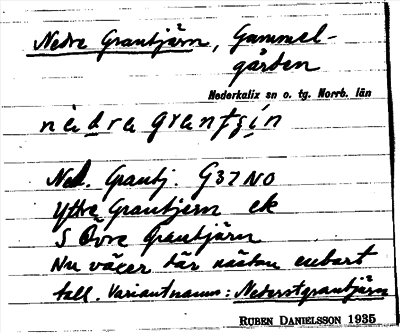 Nedre Grantjärn, Gammel-
gården
Nederkalix sn o. tg. Norrb. län
Ned. Grantj. G37 NO
Yttre Grantjern ek
S Övre Grantjärn
Nu växer där nästan enbart
tall. Variantnamn: Nederstgrantjärn
RUBEN DANIELSSON 1935